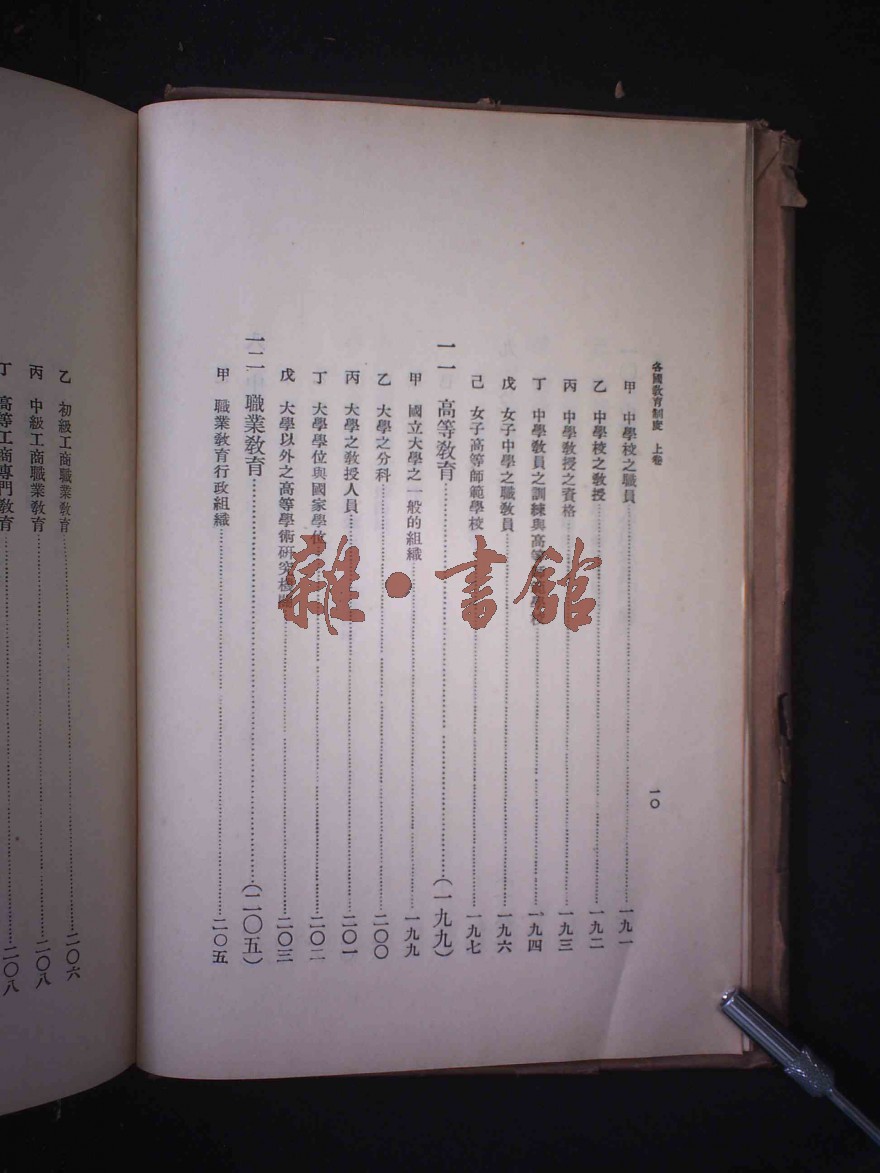 各國教育制度 上卷
一〇
甲 中學校之職員 一九一
乙 中學校之教授 一九二
丙 中學教授之資格 一九三
丁 中學教員之訓練與高等師範學校 一九四
戊 女子中學之職教員 一九六
己 女子高等師範學校 一九七
一一 高等教育 (一九九)
甲 國立大學之一般的組織 一九九
乙 大學之分科 二〇〇
丙 大學之教授人員 二〇一
丁 大學學位與國家學位 二〇二
戊 大學以外之高等學術研究機關 二〇三
一二 職業教育 (二〇五)
甲 職業教育行政組織 二〇五
乙 初級工商職業教育 二〇六
丙 中級工商職業教育 二〇八
丁 高等工商專門教育 二〇八
雜·書館